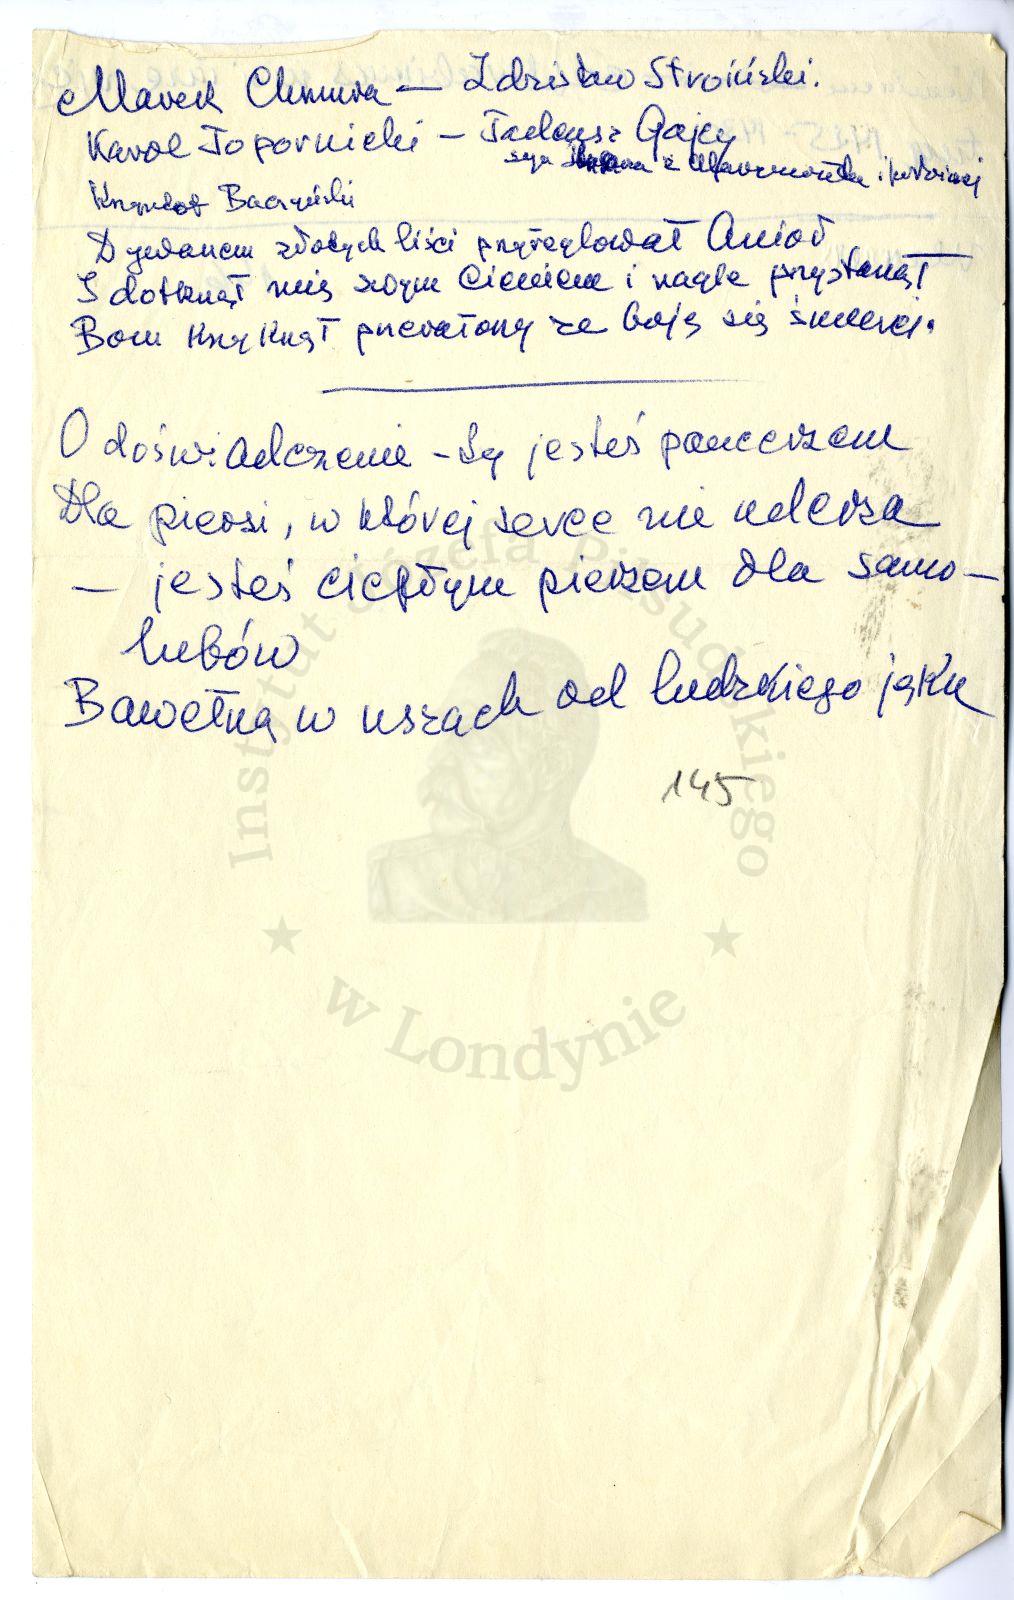 Marek Chmura — Zdzisław Stroiński.
Karol Topornicki — Tadeusz Gajcy
syn z i
Krzysztof Baczyński
Dywanem złotych liści przyszybował Anioł
I dotknął mię swym Cieniem i nagle przystanął
Bom krzyknął przerażony że boję się śmierci.
O doświadczenie – Ty jesteś pancerzem
Dla piersi, w której serce nie uderza
— jesteś ciepłym pierzem dla samo–
lubów
Bawełną w uszach od ludzkiego jęku
145
Instytut Józefa Piłsudskiego
w Londynie